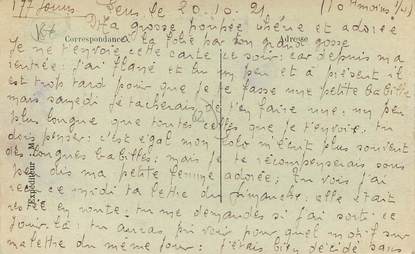 177 jours Lens le 20.10.21
Ma grosse poupée chérie et adorée
Correspondance à la folie par son grand gosse Adresse
Je ne t'envoie cette carte ce soir; car depuis ma
rentrée j'ai flané et lu un peu et à présent il
est trop tard pour que je te fasse une petite babille
mais samedi je tacherais de t'en faire une, un peu
plus longue que toutes celles que je t'envoie. tu
dois penser: c'est égal mon lolo m'écrit plus souvent
des longues babilles; mais je te récompenserais sous
peu dis ma petite femme adorée; tu vois j'ai
recu ce midi ta lettre du Dimanche, elle était
restée en route; tu me demandes si j'ai sorti ce
jour là: tu auras pu voir pour quel motif sur
ma lettre du même jour: j'étais bien décidé sans